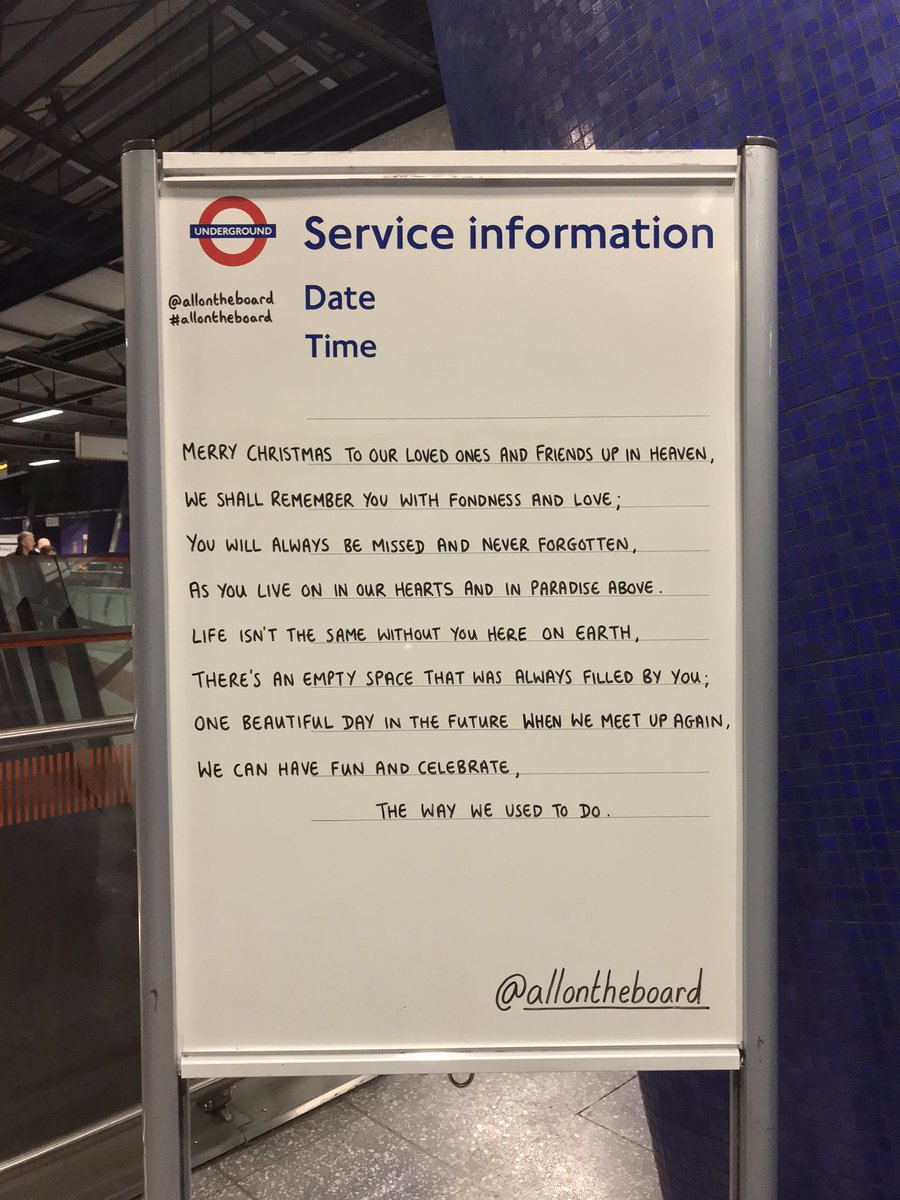 UNDERGROUND
Service information
@allontheboard
#allontheboard
Date
Time
MERRY CHRISTMAS TO OUR LOVED ONES AND FRIENDS UP IN HEAVEN,
WE SHALL REMEMBER YOU WITH FONDNESS AND LOVE;
YOU WILL ALWAYS BE MISSED AND NEVER FORGOTTEN,
AS YOU LIVE ON IN OUR HEARTS AND IN PARADISE ABOVE.
LIFE ISN'T THE SAME WITHOUT YOU HERE ON EARTH,
THERE'S AN EMPTY SPACE THAT WAS ALWAYS FILLED BY YOU;
ONE BEAUTIFUL DAY IN THE FUTURE WHEN WE MEET UP AGAIN,
WE CAN HAVE FUN AND CELEBRATE,
THE WAY WE USED TO DO.
@allontheboard